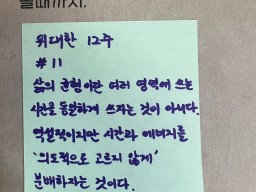 할때까지.
위대한 12주
# 11
삶의 균형이란 여러 영역에 쓰는
시간을 동일하게 쓰자는 것이 아니다.
역설적이지만 시간과 에너지를
'의도적으로 고르지 않게'
분배하자는 것이다.